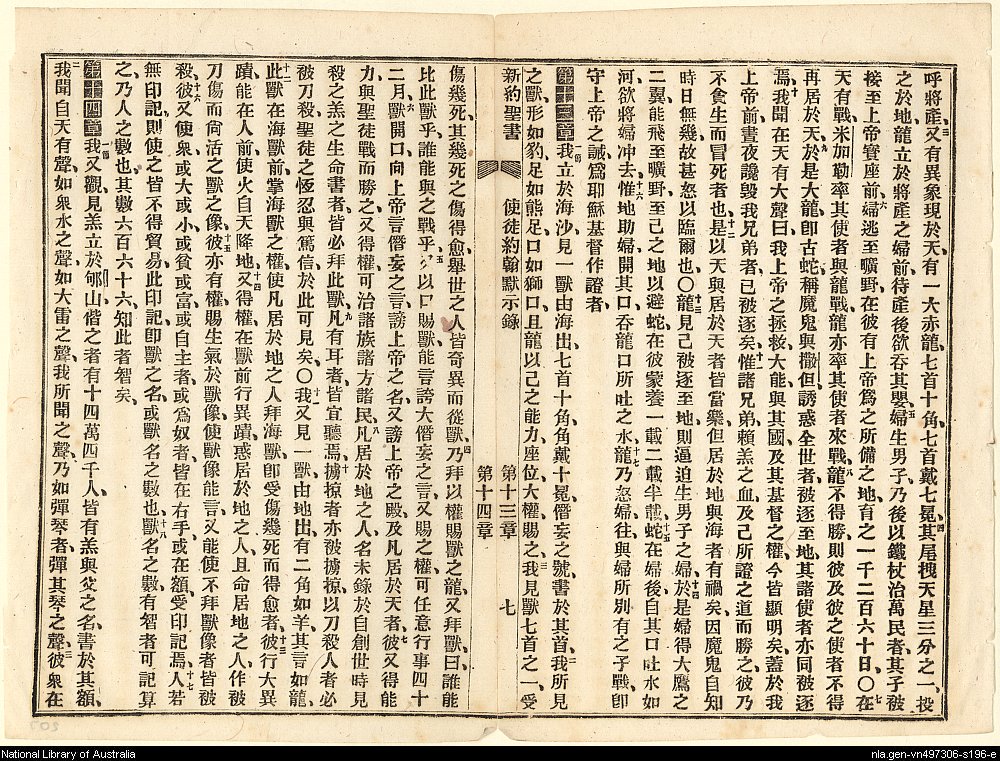 呼將產、又有異象現於天、有一大赤龍、七首十角、七首戴七冕、其尾拽天星三分之一、投
之於地、龍立於將產之婦前、待產後欲吞其嬰、婦生男子、乃後以鐵杖治萬民者、其子被
接至上帝寶座前、婦逃至曠野、在彼有上帝爲之所備之地、育之一千二百六十日、〇在
天有戰、米加勒率其使者與龍戰、龍亦率其使者來戰、龍不得勝、則彼及彼之使者不得
再居於天、於是大龍、卽古蛇、稱魔鬼與撒但、誘惑全世者、被逐至地、其諸使者亦同被逐
焉、我聞在天有大聲曰、我上帝之拯救大能、與其國、及其基督之權、今皆顯明矣、蓋於我
上帝前、晝夜譭毀我兄弟者、已被逐矣、惟諸兄弟賴羔之血、及己所證之道而勝之、彼乃
不貪生而冒死者也、是以天與居於天者、皆當樂、但居於地與海者有禍矣、因魔鬼自知
時日無幾、故甚怒以臨爾也、〇龍見己被逐至地、則逼迫生男子之婦、於是婦得大鷹之
二翼、能飛至曠野、至己之地、以避蛇、在彼蒙養一載二載半載、蛇在婦後、自其口吐水如
河、欲將婦冲去、惟地助婦、開其口、吞龍口所吐之水、龍乃忿婦、往與婦所別有之子戰、卽
守上帝之誡、爲耶穌基督作證者、
第十三章 一節 我立於海沙、見一獸由海出、七首十角、角戴十冕、僭妄之號書於其首、我所見
之獸、形如豹、足如熊足、口如獅口、且龍以己之能力、座位、大權賜之、我見獸七首之一、受
新約聖書 使徒約翰默示錄 第十三章 第十四章 七
傷幾死、其幾死之傷得愈、舉世之人皆奇異而從獸、乃拜以權賜獸之龍、又拜獸曰、誰能
比此獸乎、誰能與之戰乎、以口賜獸、能言誇大僭妄之言、又賜之權、可任意行事四十
二月、獸開口向上帝言僭妄之言、謗上帝之名、又謗上帝之殿、及凡居於天者、彼又得能
力、與聖徒戰而勝之、又得權可治諸族諸方諸民、凡居於地之人、名未錄於自創世時見
殺之羔之生命書者、皆必拜此獸、凡有耳者、皆宜聽焉、擄掠者亦被擄掠、以刀殺人者必
被刀殺、聖徒之恆忍與篤信、於此可見矣、〇我又見一獸由地出、有二角如羊、其言如龍、
此獸在海獸前、掌海獸之權、使凡居於地之人拜海獸、卽受傷幾死而得愈者、彼行大異
蹟、能在人前、使火自天降地、又得權在獸前行異蹟、惑居於地之人、且命居地之人、作被
刀傷而尙活之獸之像、彼亦有權賜生氣於獸像、使獸像能言、又能使不拜獸像者皆被
殺、彼又使衆或大或小、或貧或富、或自主者、或爲奴者、皆在右手或在額、受印記焉、人若
無印記、則使之皆不得貿易、此印記、卽獸之名、或獸名之數也、獸名之數、有智者可計算
之、乃人之數也、其數六百六十六、知此者智矣、
第十四章 一節 我又觀、見羔立於郇山、偕之者有十四萬四千人、皆有羔與父之名、書於其額、
我聞自天有聲、如衆水之聲、如大雷之聲、我所聞之聲、乃如彈琴者、彈其琴之聲、彼衆在
National Library of Australia
nla.gen-vn497306-s196-e